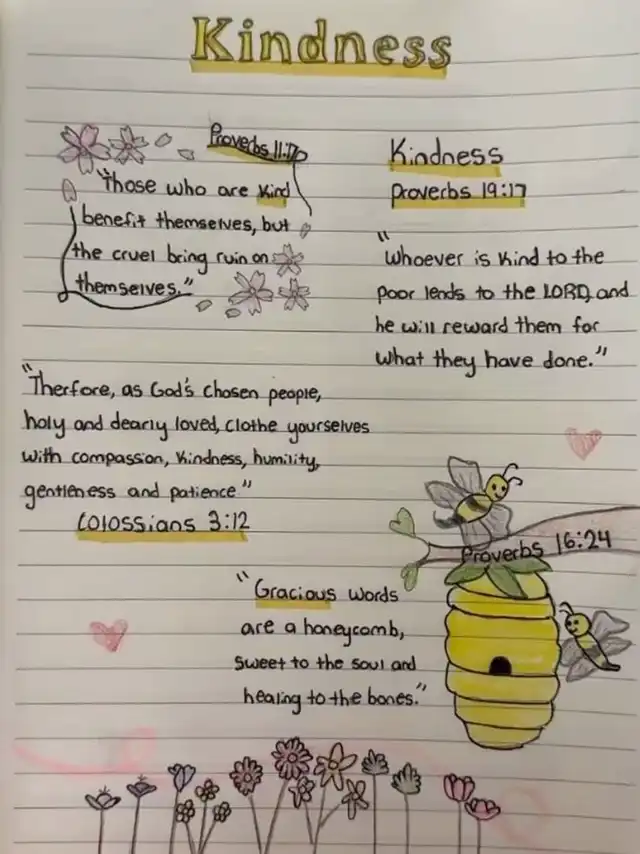 Kindness
Proverbs 11:17
"Those who are Kind
benefit themselves, but
the cruel bring ruin on
themselves."
Kindness
Proverbs 19:17
"Whoever is kind to the
poor lends to the LORD, and
he will reward them for
what they have done."
"Therfore, as God's chosen people,
holy and dearly loved, clothe yourselves
with compassion, kindness, humility,
gentleness and patience"
Colossians 3:12
Proverbs 16:24
"Gracious words
are a honeycomb,
sweet to the soul and
healing to the bones."